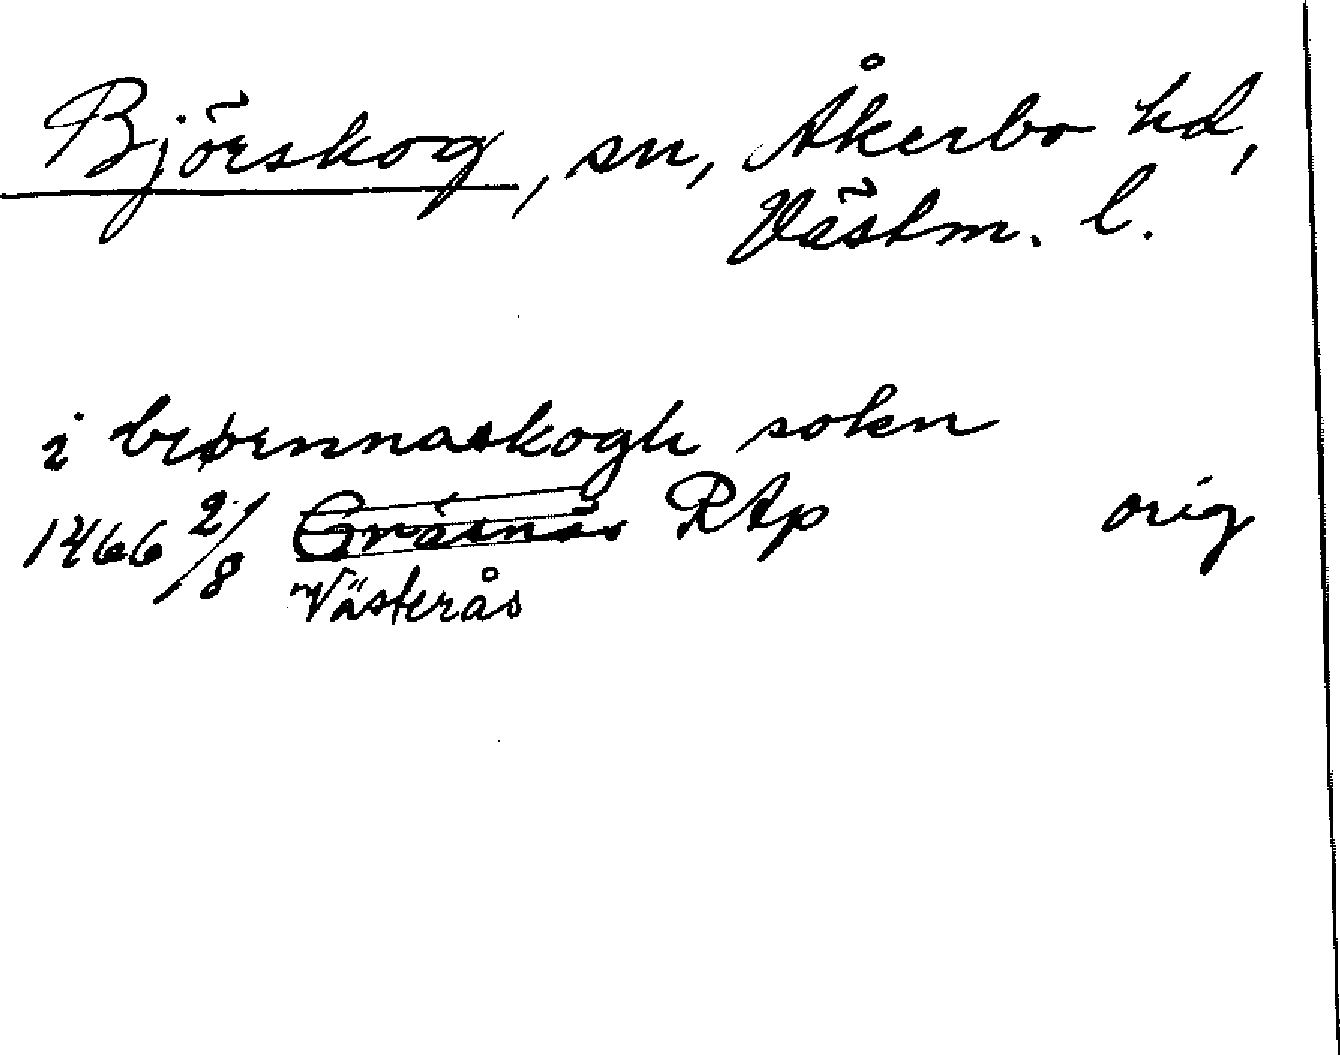 Björskog, sn, Åkerbo hd,
Västm. l.
i biørnnaskogh sokn
1466 2/8 Gräsnäs RAp orig
Västerås